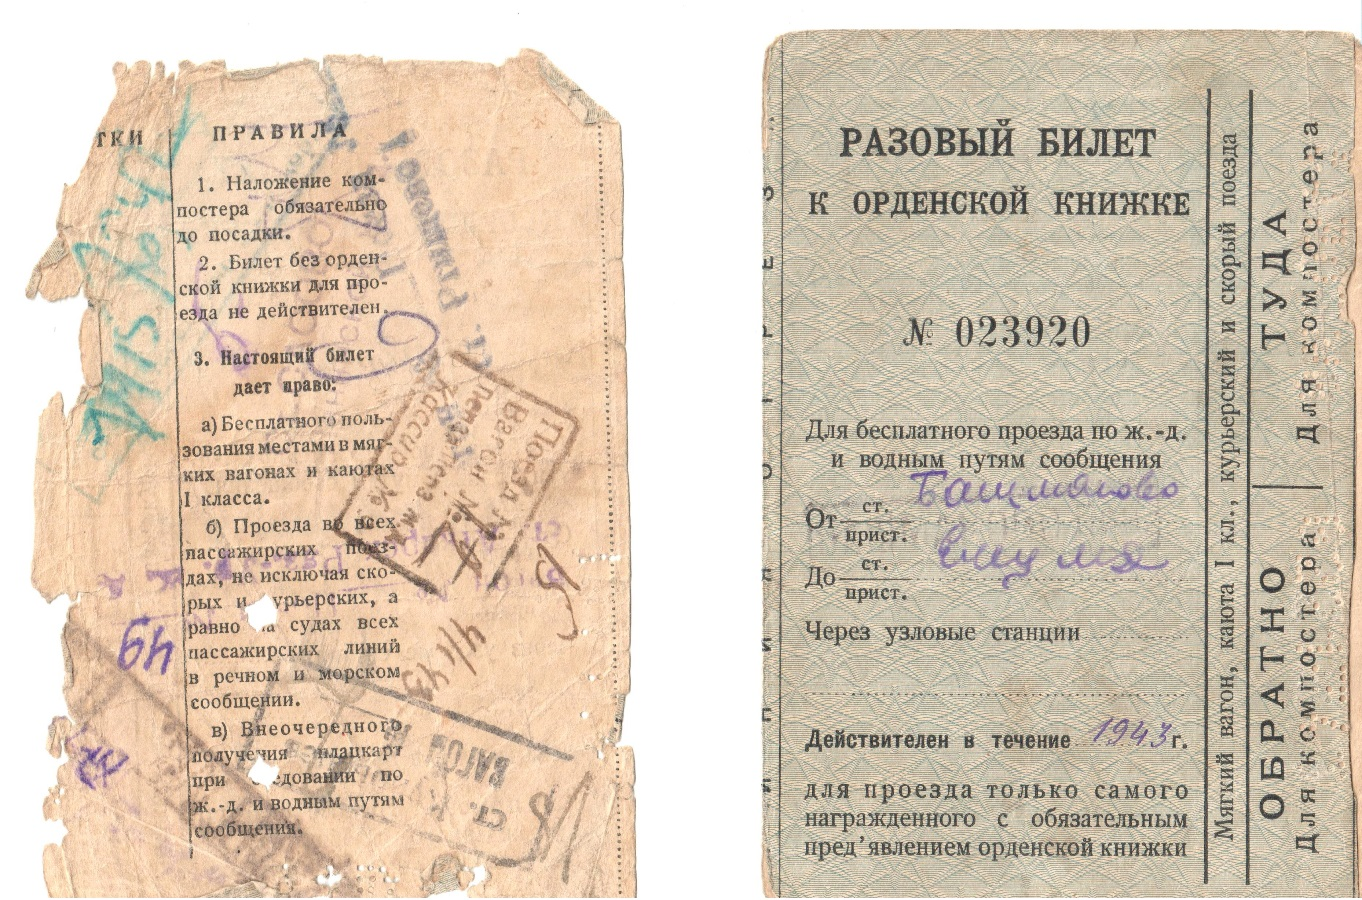 ТКИ
ПРАВИЛА
1. Наложение ком-
постера обязательно
до посадки.
2. Билет без орден-
ской книжки для про-
езда не действителен.
3. Настоящий билет
дает право:
а) Бесплатного поль-
зования местами в мяг-
ких вагонах и каютах
I класса.
б) Проезда во всех
пассажирских поез-
дах, не исключая ско-
рых и урьерских, а
равно на судах всех
пассажирских линий
в речном и морском
сообщении.
в) Внеочередного
получения плацкарт
при едовании по
ж.-д. и водным путям
сообщения.
ст. Ртищево I
Поезд №
Вагон №
Кассир №
4/I 43
49
ВАГОН
РАЗОВЫЙ БИЛЕТ
К ОРДЕНСКОЙ КНИЖКЕ
№ 023920
Для бесплатного проезда по ж.-д.
и водным путям сообщения
От ст. Башмаково
прист.
До ст.
прист.
Через узловые станции
Действителен в течение 1943 г.
для проезда только самого
награжденного с обязательным
пред'явлением орденской книжки
Мягкий вагон, каюта I кл., курьерский и скорый поезда
ТУДА
Для компостера
ОБРАТНО
Для компостера